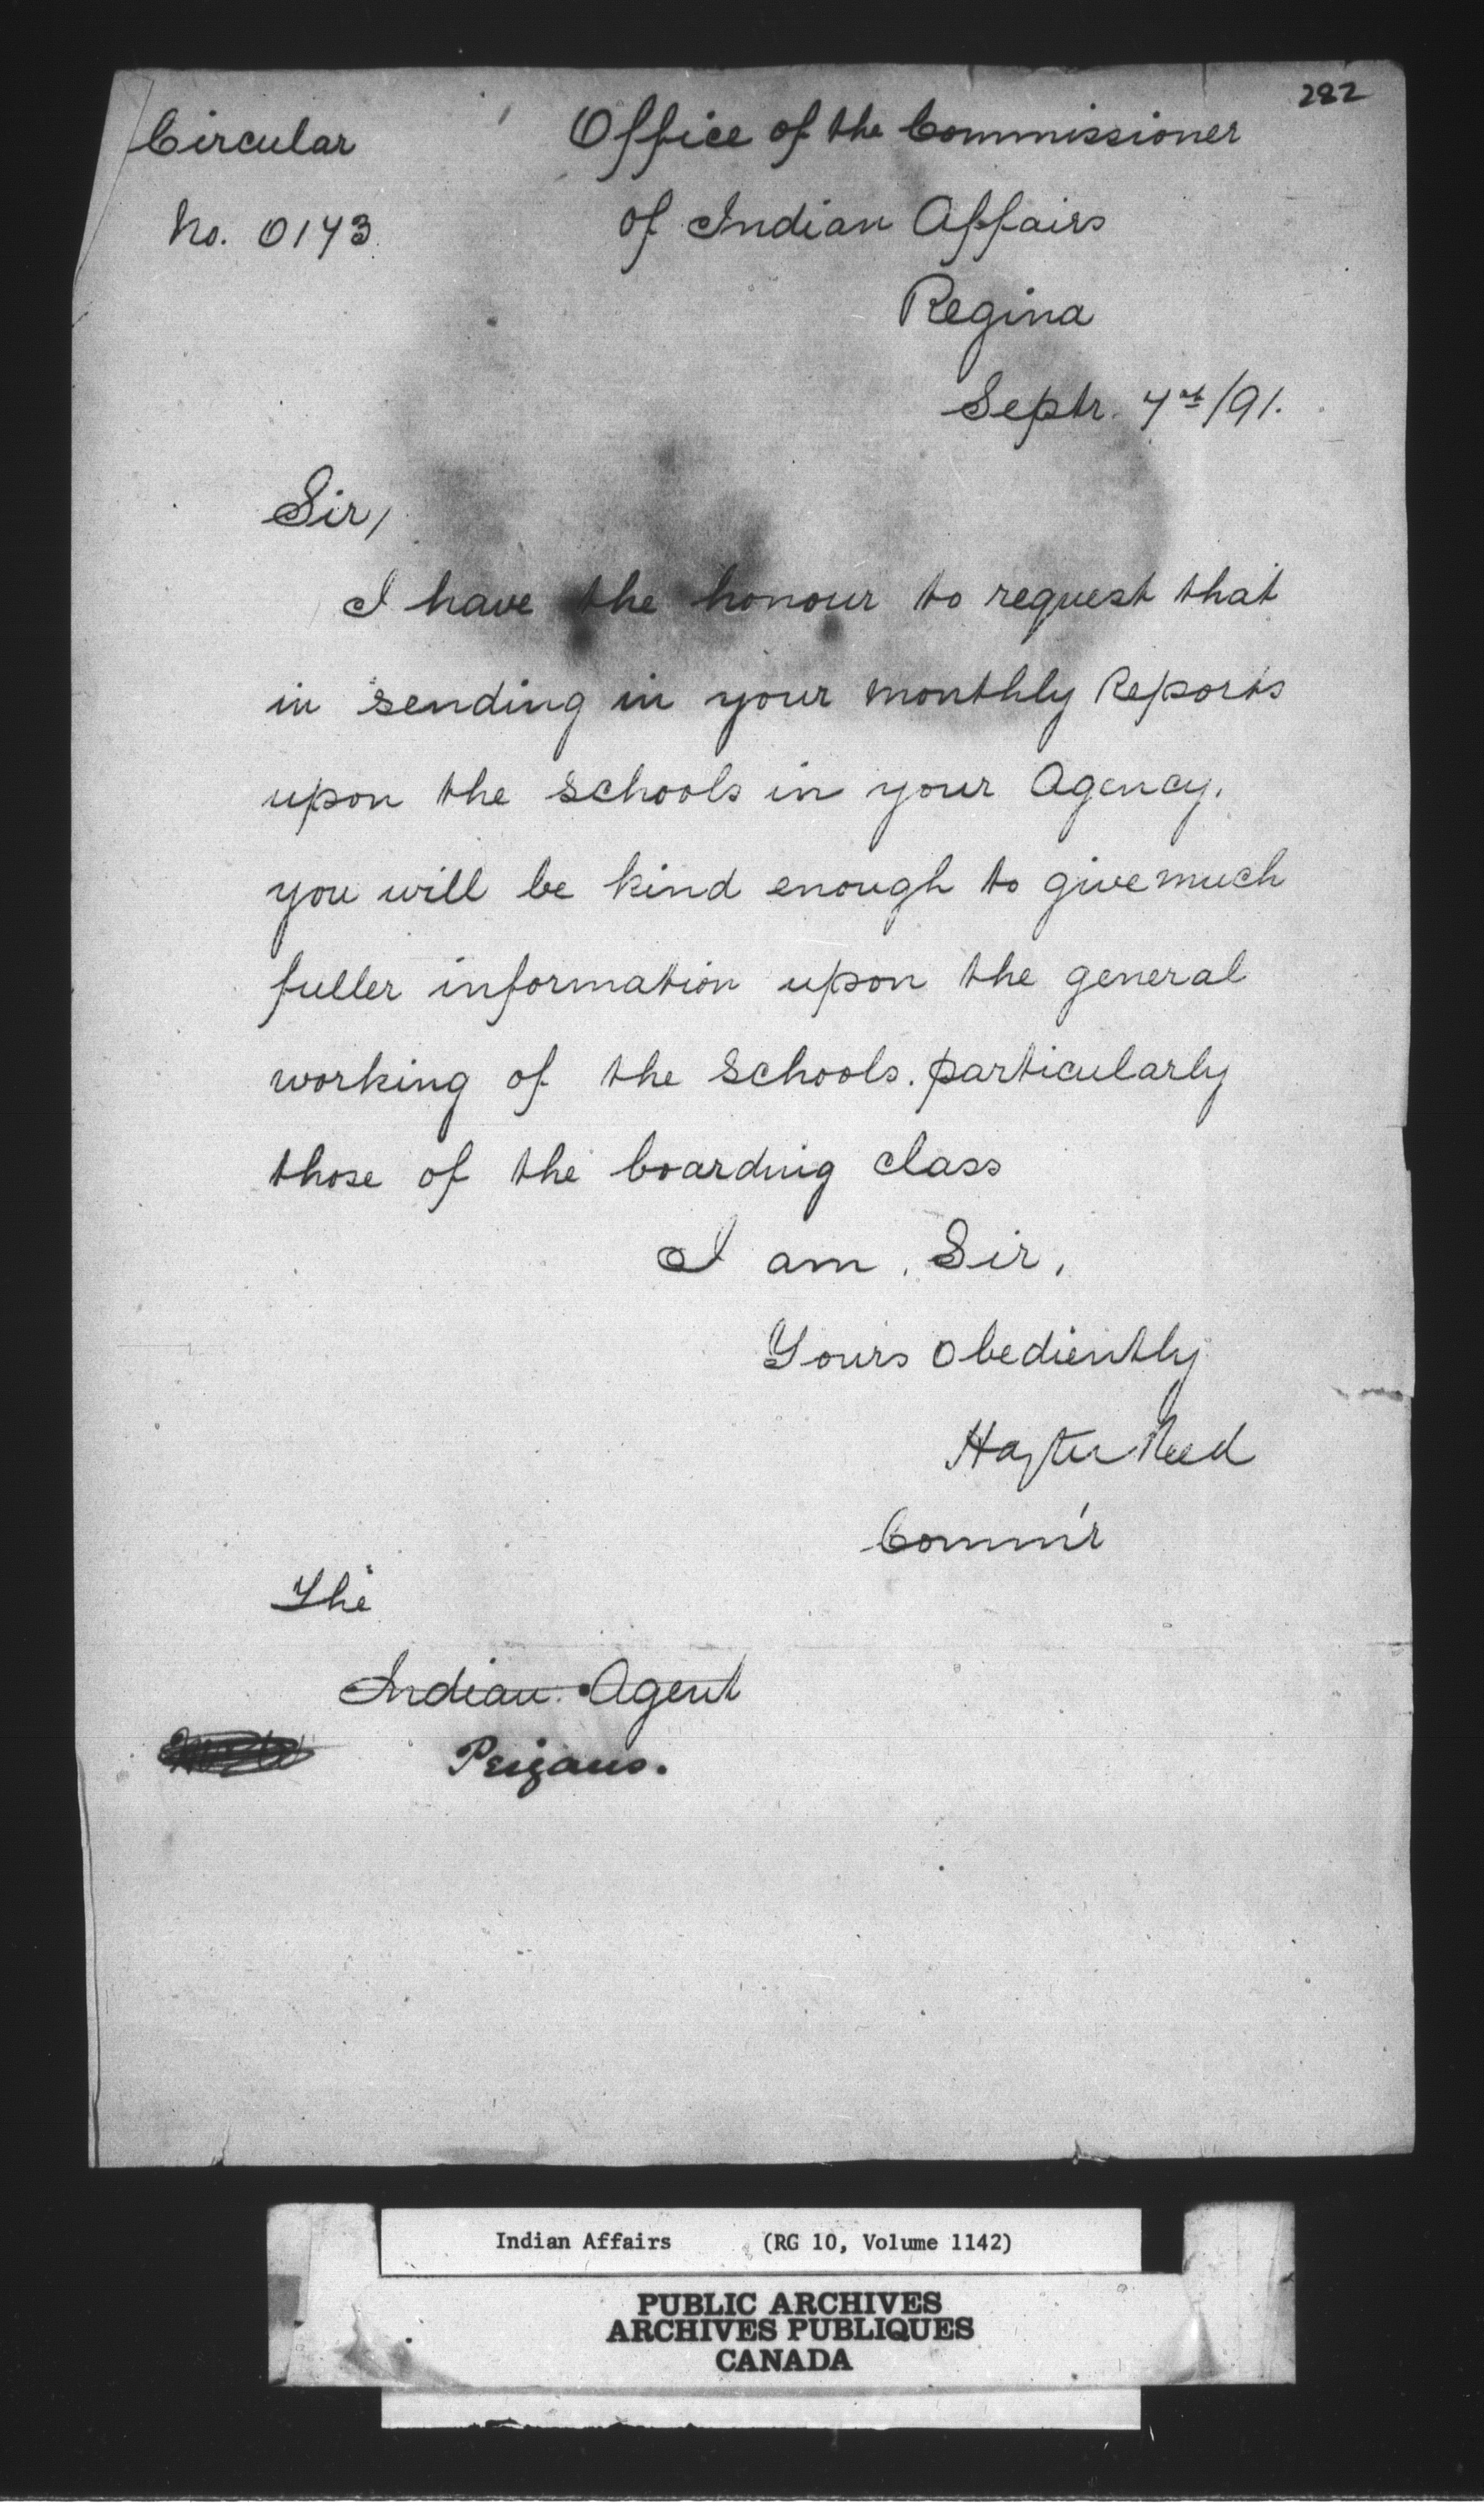 282
Circular
No. 0173
Office of the Commissioner
of Indian Affairs
Regina
Septr. 7th/91.
Sir,
I have the honour to request that
in sending in your monthly Reports
upon the schools in your Agency,
you will be kind enough to give much
fuller information upon the general
working of the schools. particularly
those of the boarding class
I am, Sir,
Yours obediently
Hayter Reed
Comm'r
The
Indian Agent
Peigans.
Indian Affairs (RG 10, Volume 1142)
PUBLIC ARCHIVES
ARCHIVES PUBLIQUES
CANADA